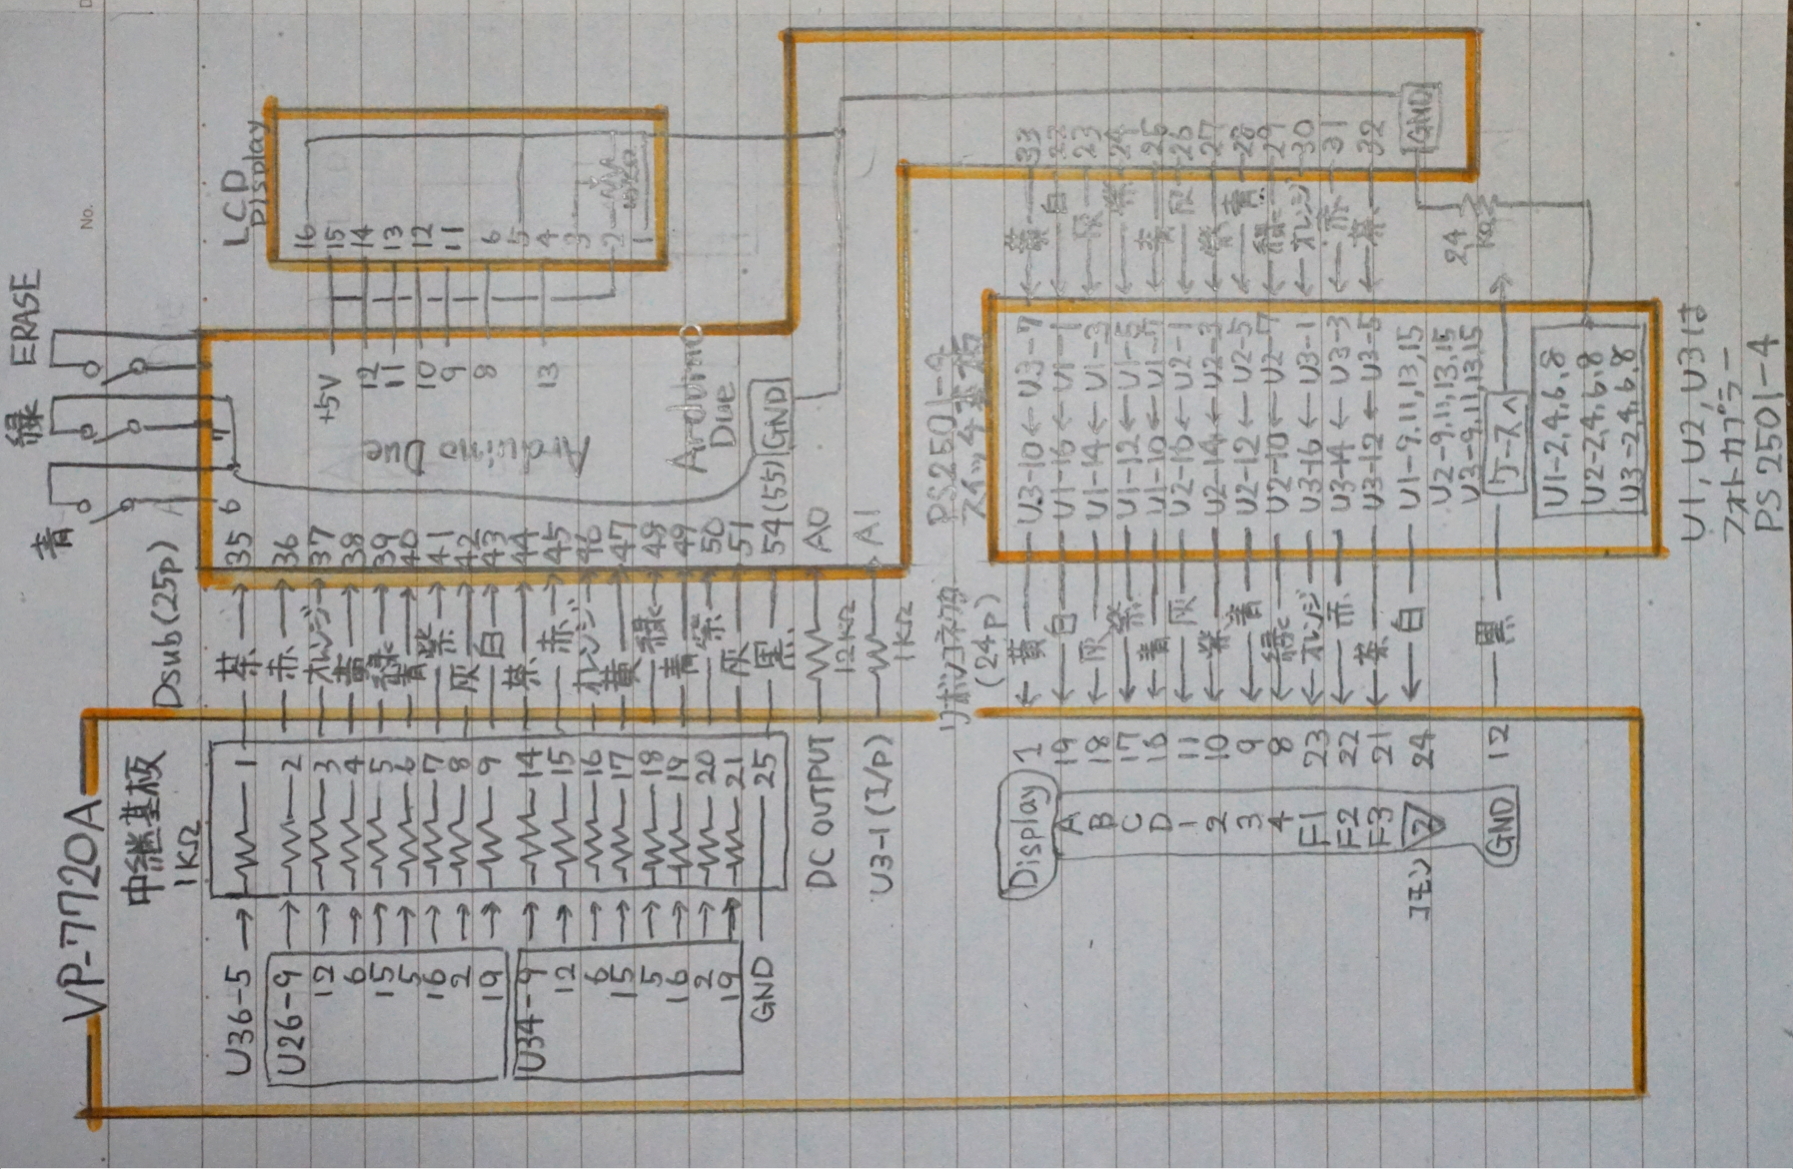 No.
ERASE
緑
青
LCD
Display
16
15
14
13
12
11
6
5
4
3
2
1
+5V
12
11
10
9
8
13
Arduino Due
Arduino
Due
GND
7
6
Dsub(25p)
35
36
37
38
39
40
41
42
43
44
45
46
47
48
49
50
51
54(55)
A0
A1
茶
赤
オレンジ
黄
緑
青
紫
灰
白
茶
赤
オレンジ
黄
緑
青
紫
灰
黒
12KΩ
1KΩ
VP-7720A
中継基板
1KΩ
U36-5 → 1
U26-9 → 2
12 → 3
6 → 4
15 → 5
5 → 6
16 → 7
2 → 8
19 → 9
U34-9 → 14
12 → 15
6 → 16
15 → 17
5 → 18
16 → 19
2 → 20
19 → 21
GND 25
DC OUTPUT
U3-1 (I/P)
33
22
23
24
25
26
27
28
29
30
31
32
GND
黄
白
灰
紫
青
灰
紫
青
緑
オレンジ
赤
茶
2,4
KΩ
PS2501-4
スイッチ基板
U3-10 ← U3-7
U1-16 ← U1-1
U1-14 ← U1-3
U1-12 ← U1-5
U1-10 ← U1-7
U2-16 ← U2-1
U2-14 ← U2-3
U2-12 ← U2-5
U2-10 ← U2-7
U3-16 ← U3-1
U3-14 ← U3-3
U3-12 ← U3-5
U1-9,11,13,15
U2-9,11,13,15
U3-9,11,13,15
ケースへ
U1-2,4,6,8
U2-2,4,6,8
U3-2,4,6,8
リボンコネクタ
(24P)
黄
白
灰
紫
青
灰
紫
青
緑
オレンジ
赤
茶
白
黒
Display
1
A 19
B 18
C 17
D 16
1 11
2 10
3 9
4 8
F1 23
F2 22
F3 21
コモン 24
GND 12
U1, U2, U3は
フォトカプラー
PS2501-4